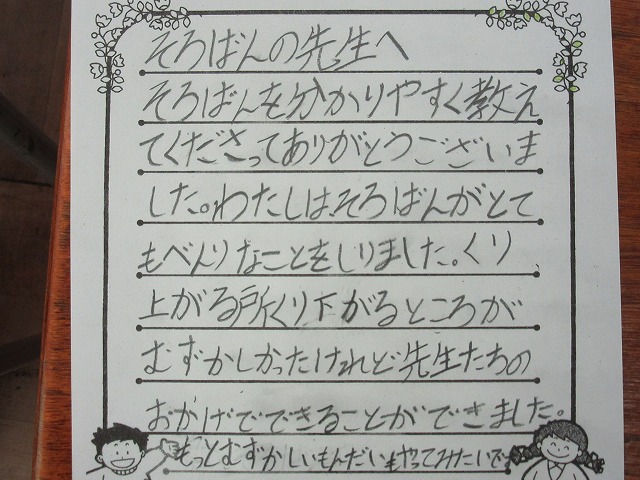 そろばんの先生へ
そろばんを分かりやすく教え
てくださってありがとうございま
した。わたしは、そろばんがとて
もべんりなことをしりました。くり
上がる所くり下がるところが
むずかしかったけれど先生たちの
おかげでできることができました。
もっとむずかしいもんだいもやってみたいです